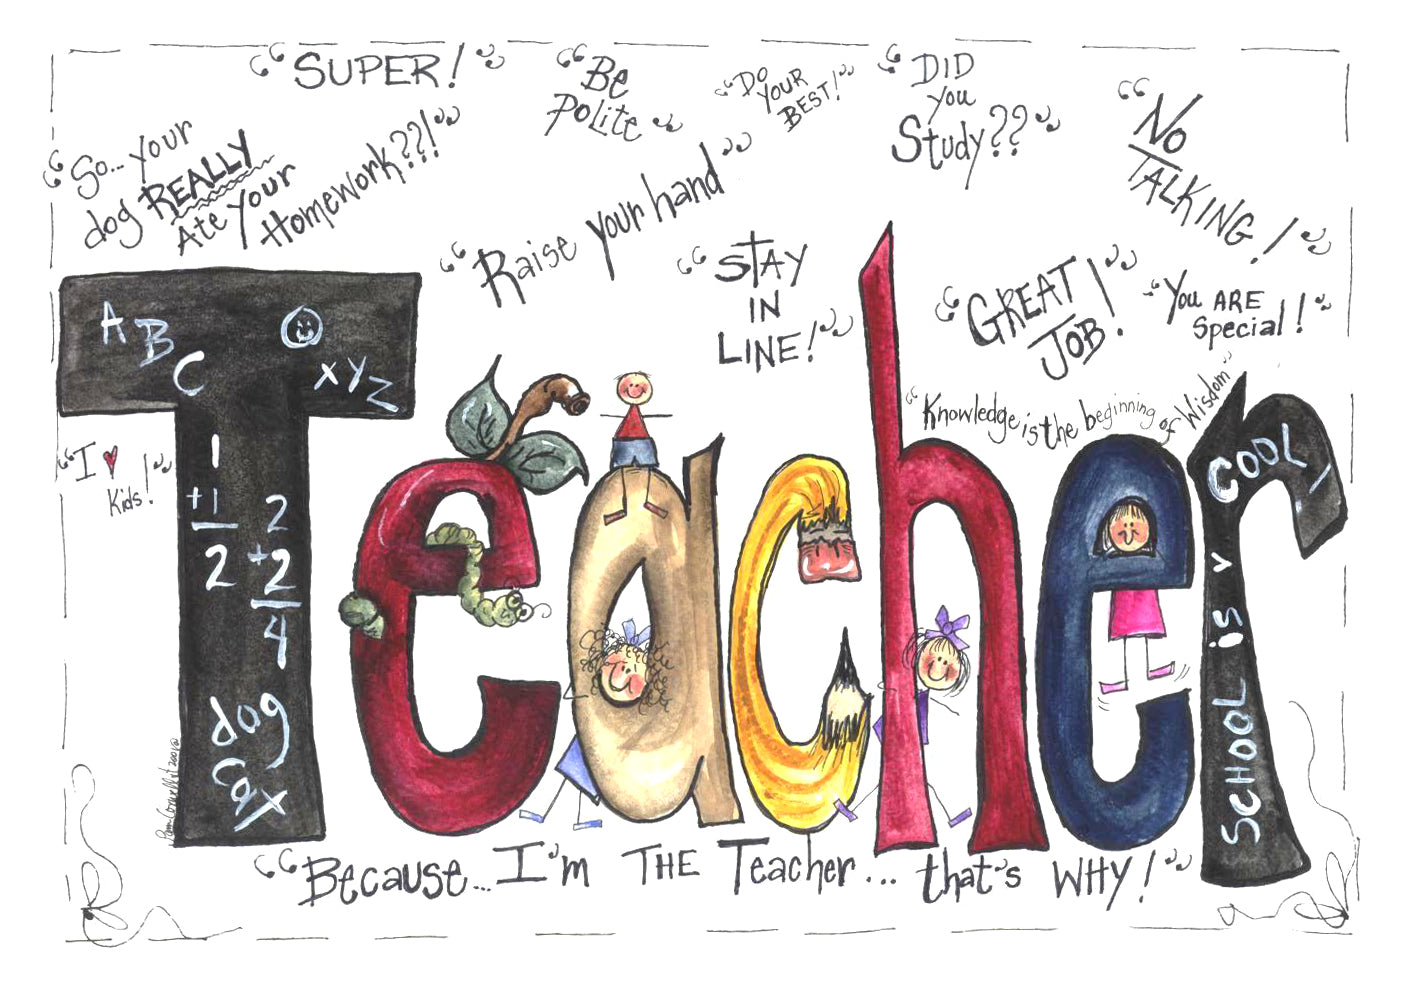 “SUPER!”
“Be
Polite”
“Do
YOUR
BEST!”
“DID
you
Study??”
“No
TALKING!”
“So... your
dog REALLY
Ate Your
Homework??!”
“Raise your hand”
“STAY
IN
LINE!”
“GREAT
JOB!”
“You ARE
Special!”
“Knowledge is the beginning of Wisdom”
“I ♥
Kids!”
Teacher
A B C
XYZ
1
+1
2
2
+2
4
dog
cat
SCHOOL is v COOL
“Because... I'm THE Teacher... that's WHY!”